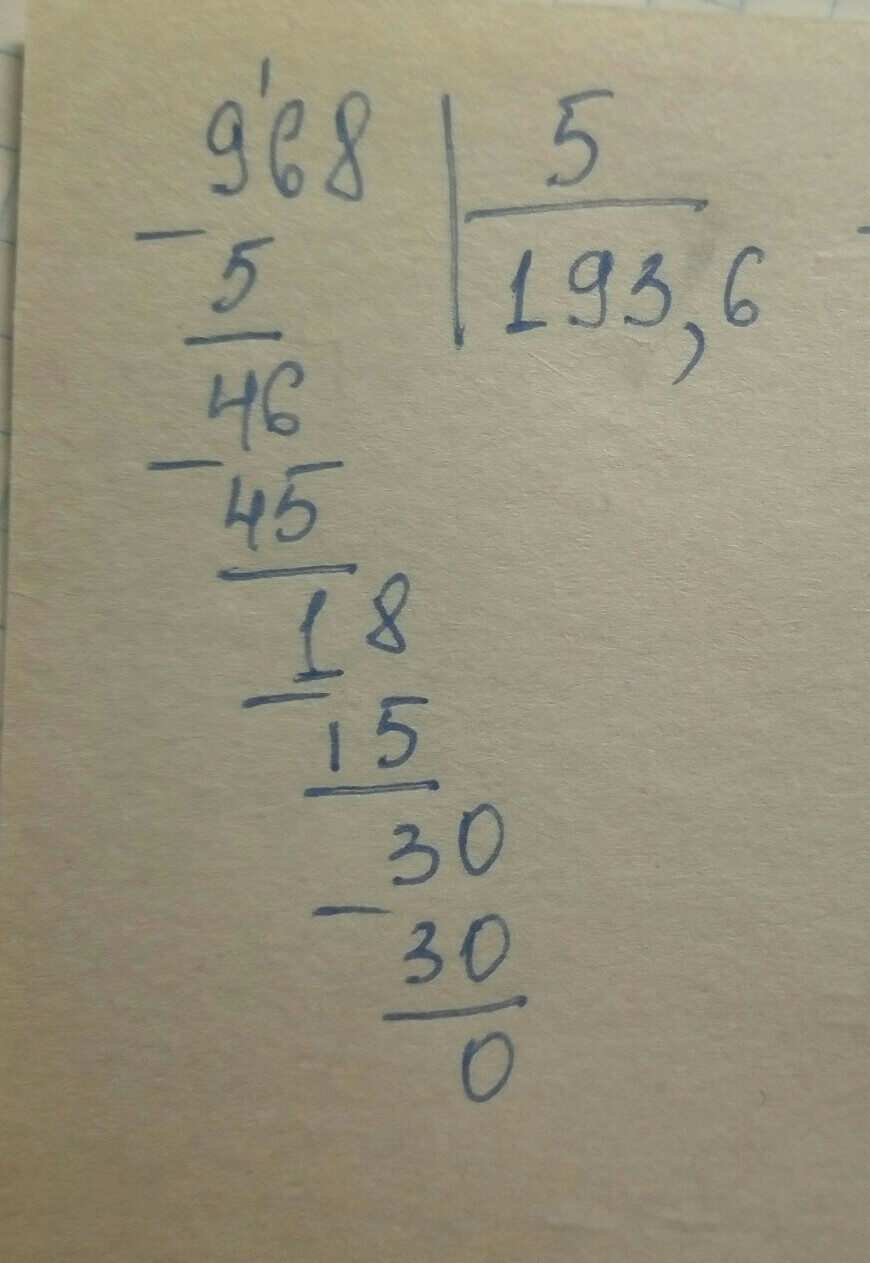 9'68 5
- 5 193,6
46
- 45
18
- 15
30
- 30
0